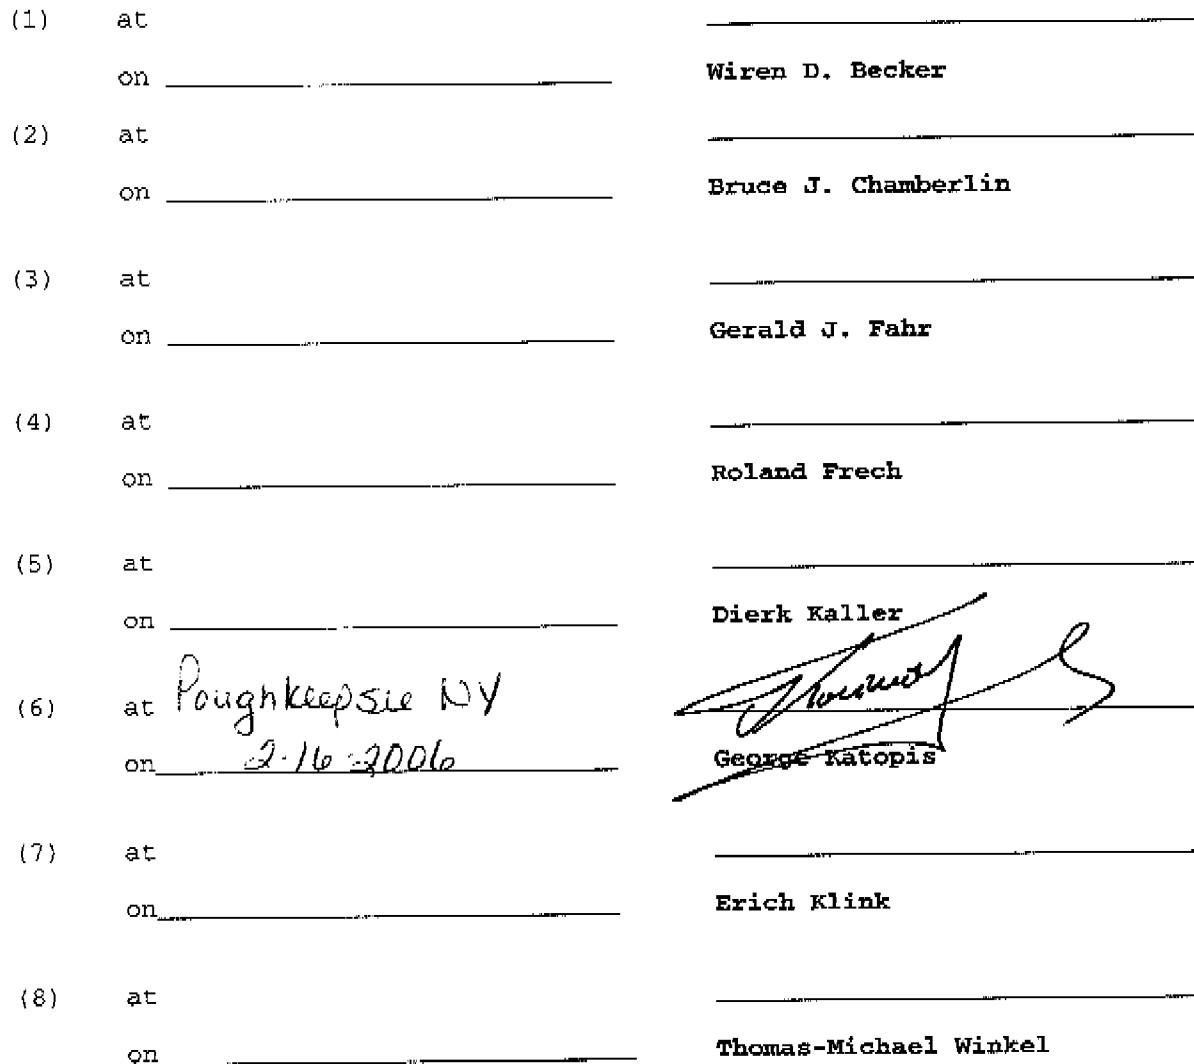 (1) at
on
Wiren D. Becker
(2) at
on
Bruce J. Chamberlin
(3) at
on
Gerald J. Fahr
(4) at
on
Roland Frech
(5) at
on
Dierk Kaller
(6) at Poughkeepsie NY
on 2-16-2006
George Katopis
(7) at
on
Erich Klink
(8) at
on
Thomas-Michael Winkel